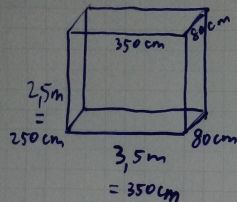 80cm
350cm
2,5m
=
250cm
80cm
3,5m
= 350cm